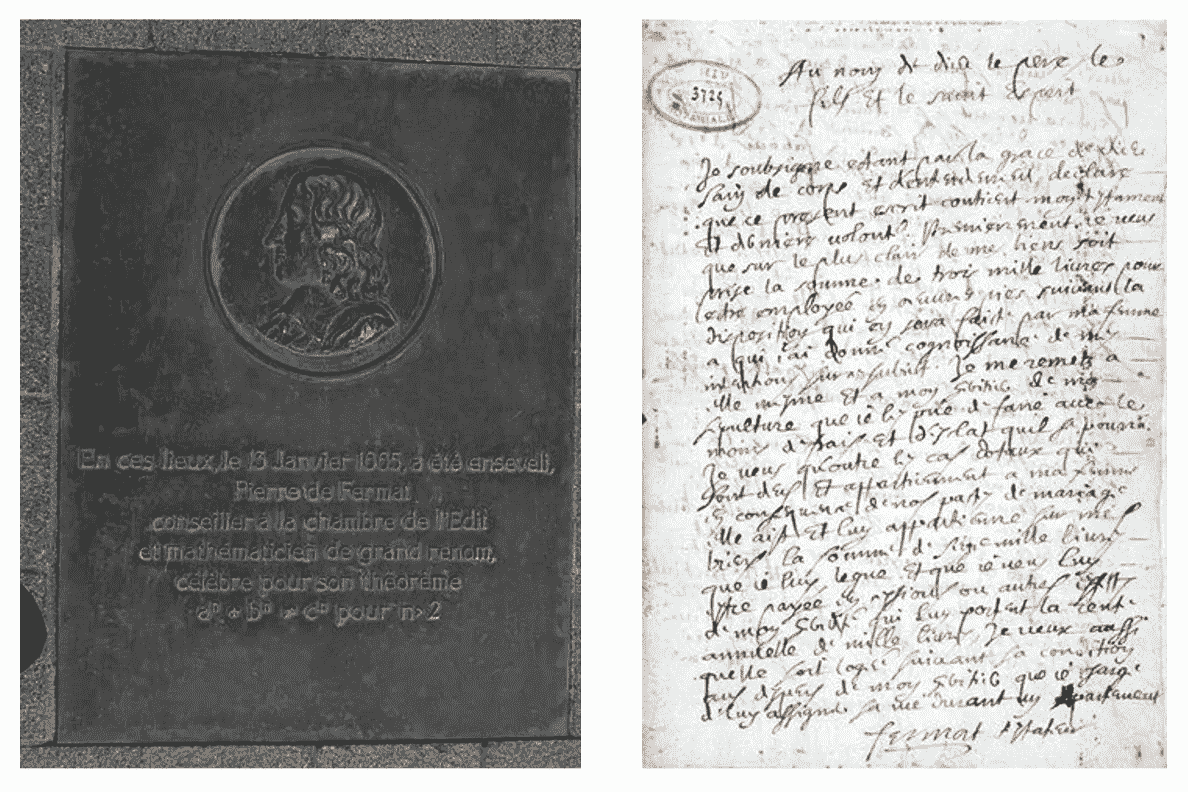 En ces lieux, le 13 Janvier 1665, a été enseveli,
Pierre de Fermat
conseiller à la chambre de l'Edit
et mathématicien de grand renom,
célèbre pour son théorème
aⁿ + bⁿ ≠ cⁿ pour n>2
3725
Au nom de dieu le pere le
fils Et le saint Esprit
Je soubsigne estant par la grace de dieu
sain de corps Et dentendement, declare
que ce present escrit contient mon testament
Et derniere volonté. Premierement, ie veus
que sur le plus clair de me biens soit
prise la somme de trois mille livres pour
estre employée en œuvres pies suivant la
disposition qui en sera faite par ma femme
a qui i'ai donné cognoissance de mes
intentions sur ce subiet. Je me remets a
elle mesme et a mon heritier de ma
sepulture que ie les prie de faire avec le
moins de frais Et d'esclat quil se pourra.
Je veus qu'outre les cas dotaux qui
sont deus Et appartienent a ma femme
en consequence de nos pactes de mariage
elle ait Et luy appartienne sur mes
biens la somme de seize mille livres
que ie luy legue Et que ie veus luy
estre payée en pensions ou autres
de mon heredité qui luy portent la rente
annuelle de mille livres, Je veux aussi
quelle soit logée suivant sa condition
aus depens de mon heritier que ie charge
de luy assigner sa vie durant un apartement
fermat testateur